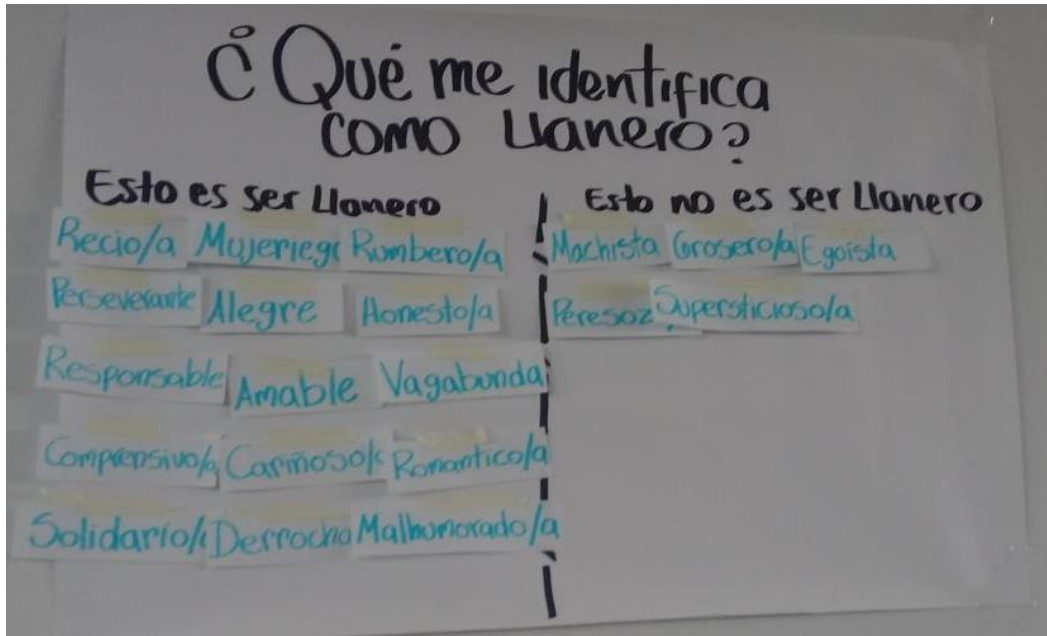 ¿Qué me identifica
como Llanero?
Esto es ser Llanero
Recio/a Mujerieg Rumbero/a
Perseverante Alegre Honesto/a
Responsable Amable Vagabunda
Comprensivo/a Cariñoso/ Romantico/a
Solidario/ Derrocha Malhumorado/a
Esto no es ser Llanero
Machista Grosero/a Egoista
Peresoz Supersticioso/a